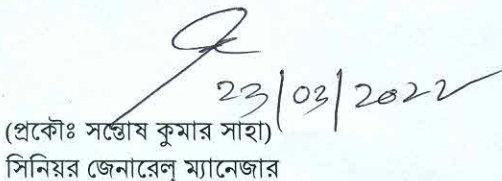 23/03/2022
(প্রকৌঃ সন্তোষ কুমার সাহা)
সিনিয়র জেনারেল ম্যানেজার